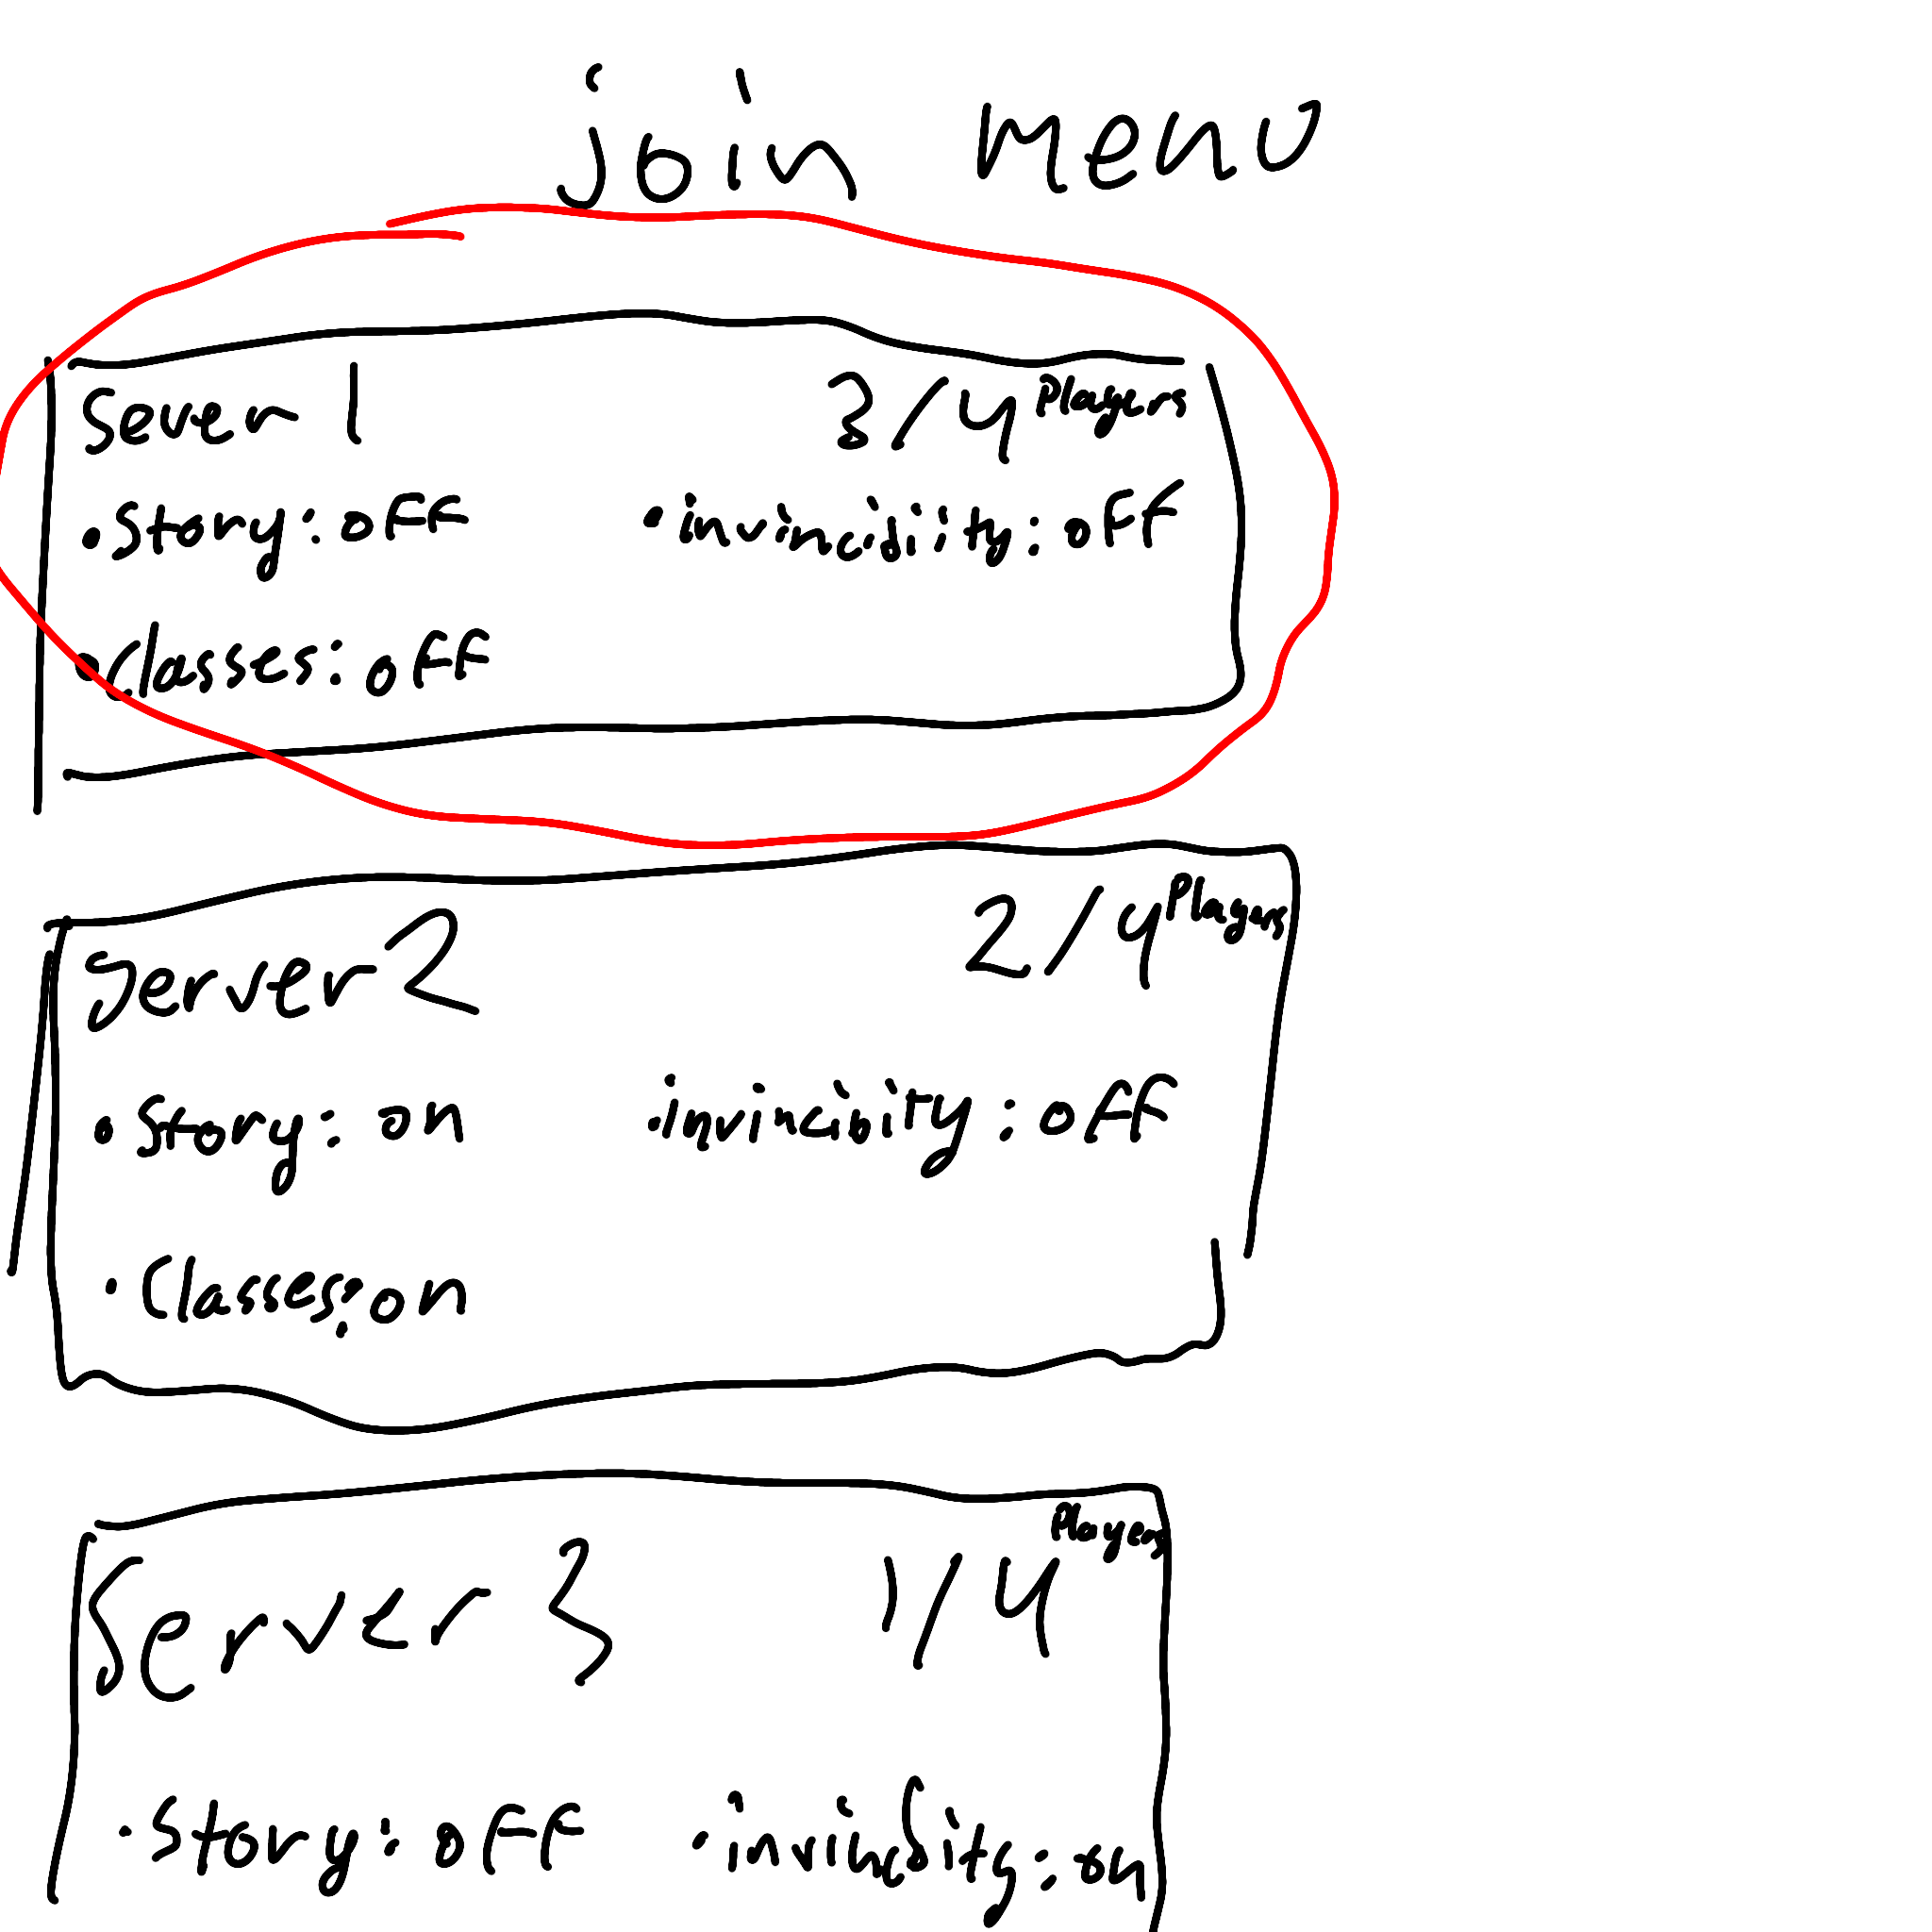 join Menu
Sever 1 3/4 Players
• Story: off • invincidiity: off
• Classes: off
Server 2 2/4 Players
• Story: on • invincibity: off
• Classes: on
Server 3 1/4 Players
• Story: off • invincibity: on